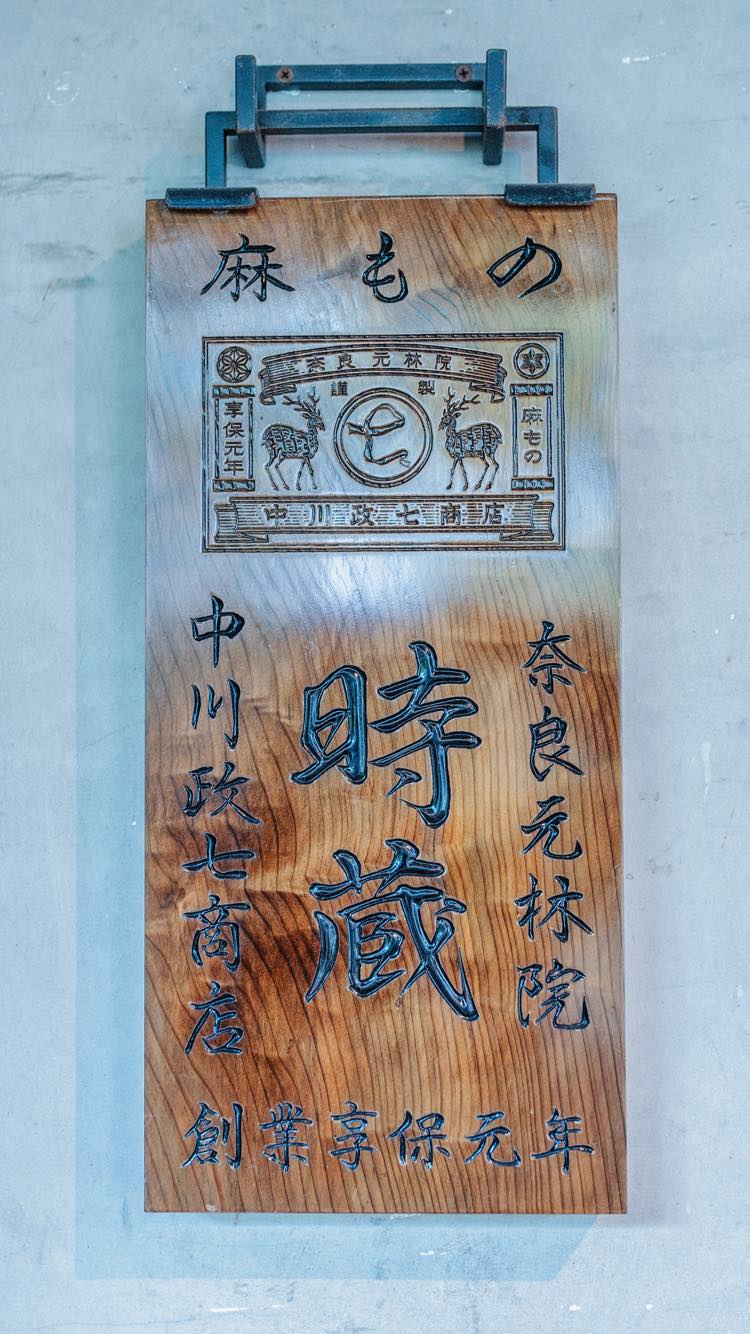 麻もの
奈良元林院
謹製
享保元年
七
麻もの
中川政七商店
奈良元林院
時蔵
中川政七商店
創業享保元年